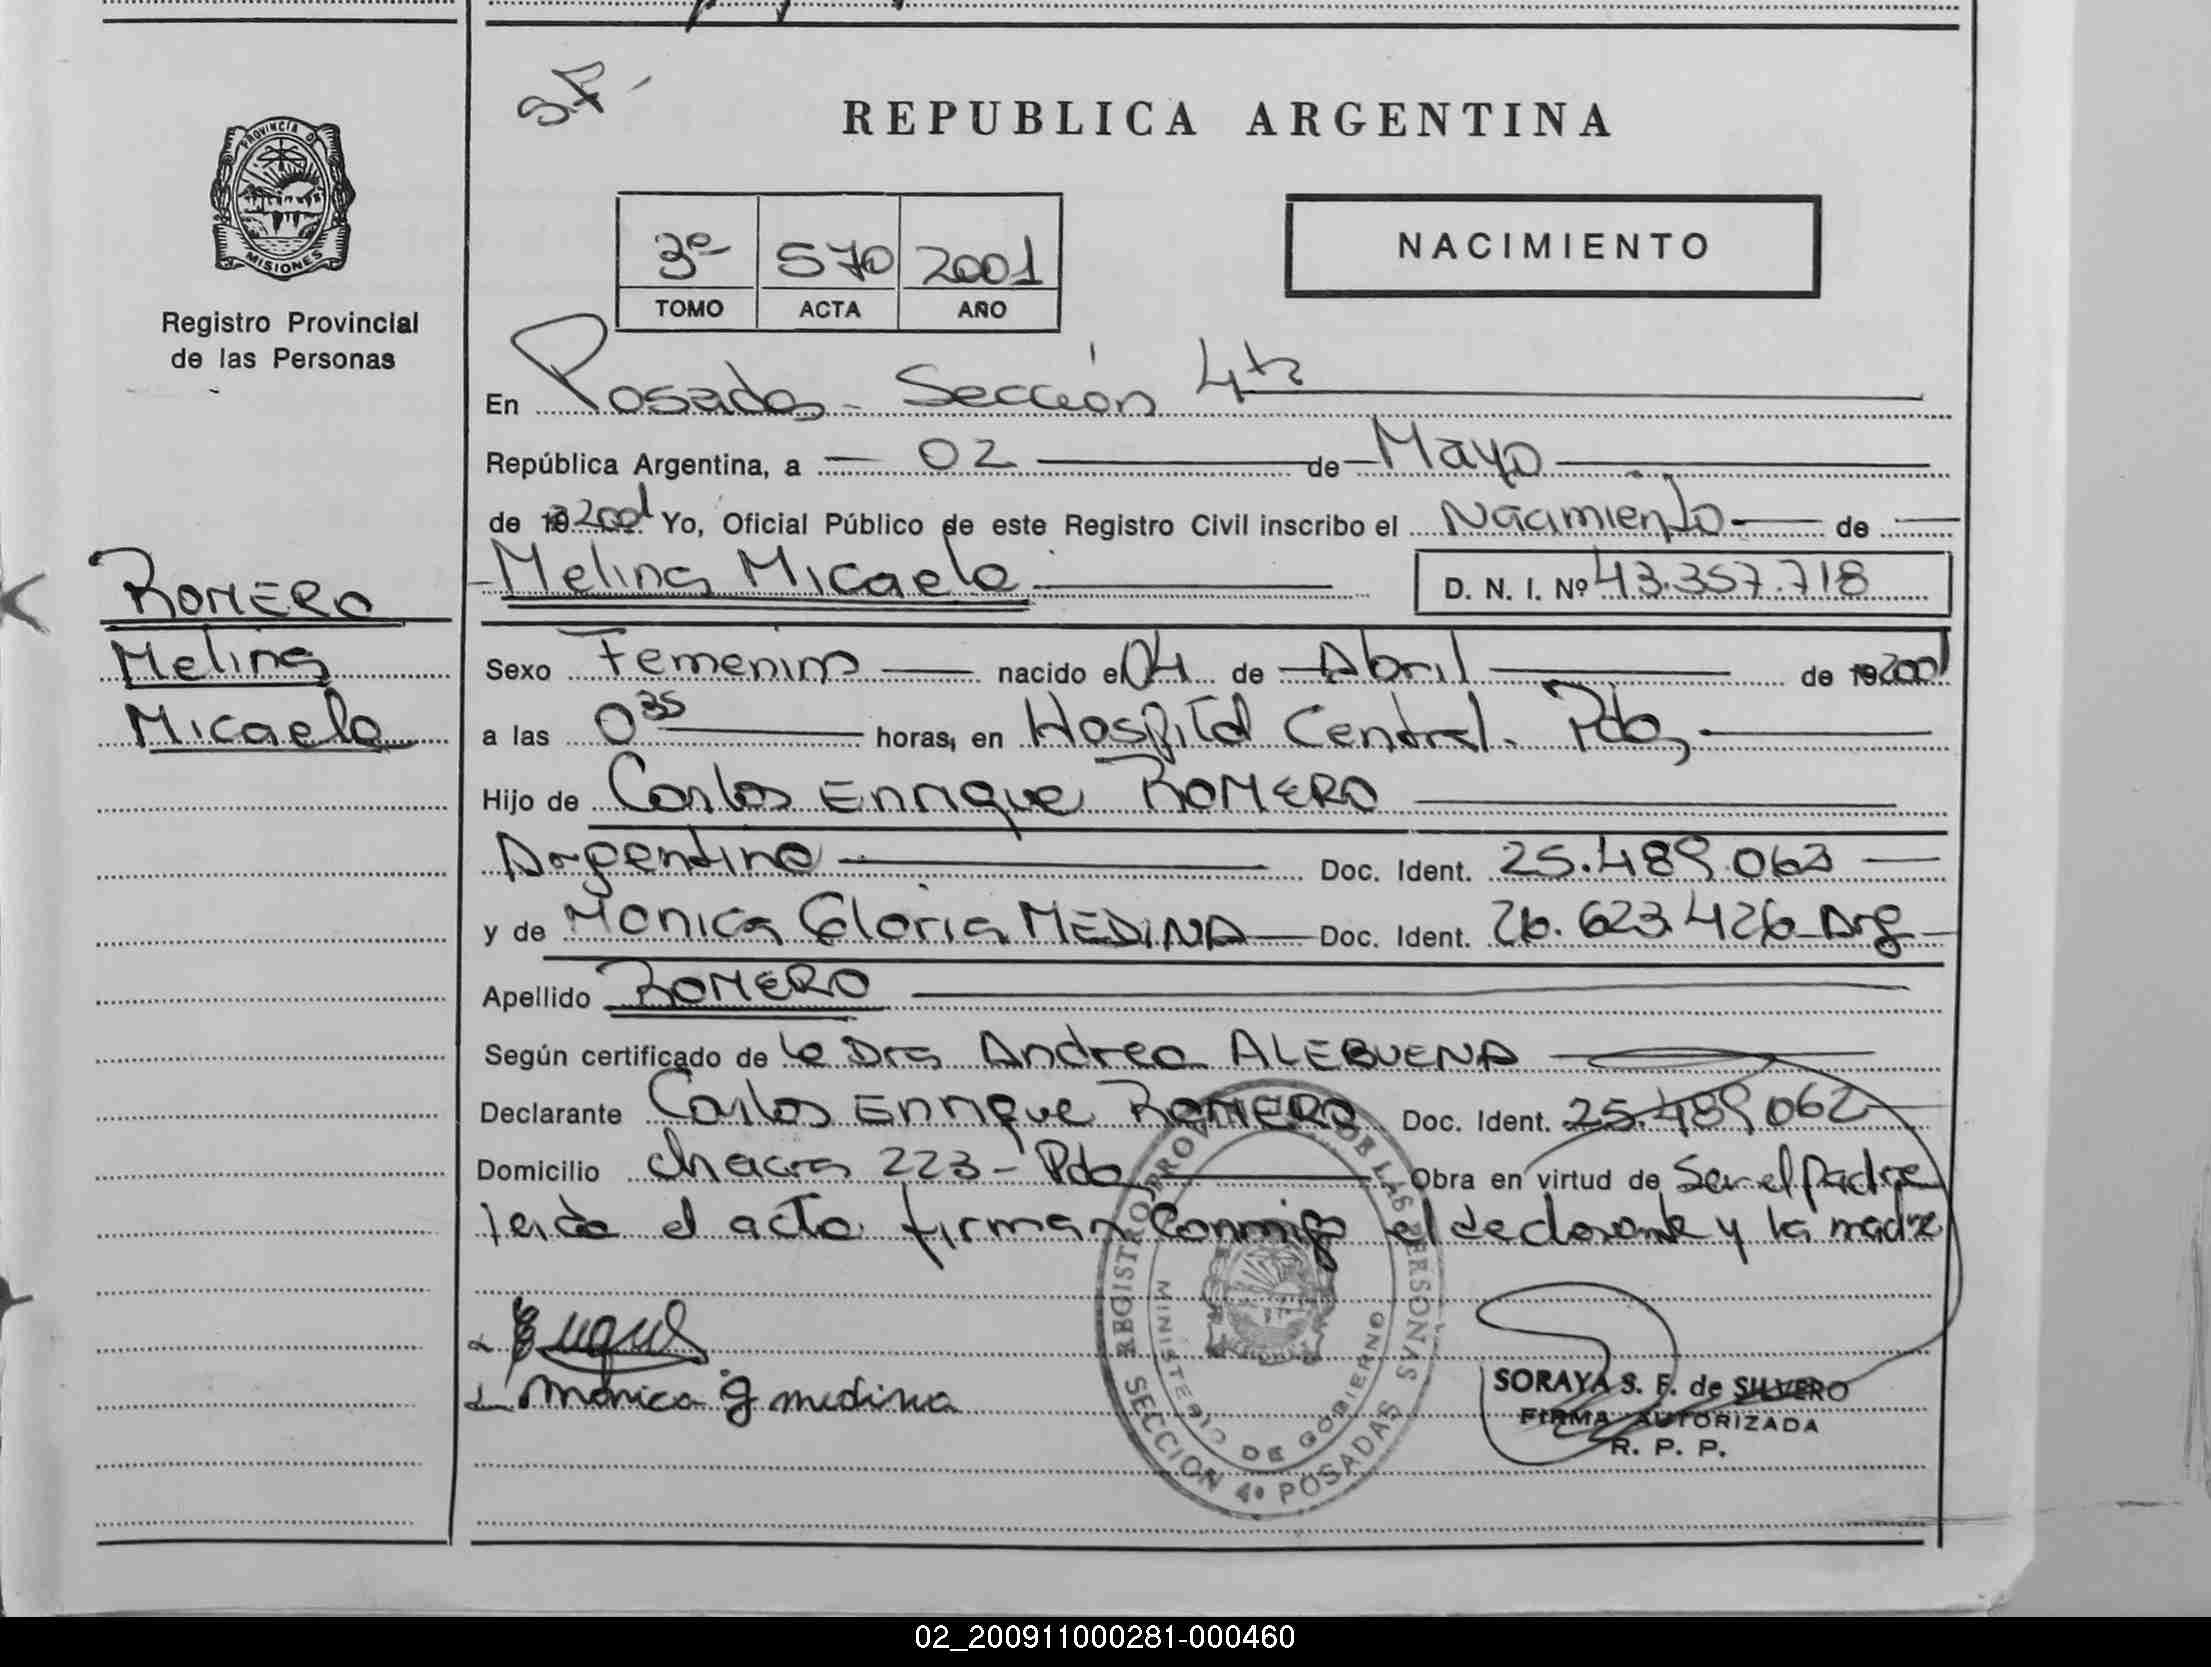 S.F.-
PROVINCIA DE
MISIONES
Registro Provincial
de las Personas
REPUBLICA ARGENTINA
3º 570 2001
TOMO ACTA AÑO
NACIMIENTO
En Posadas - Sección 4ta
República Argentina, a 02 de Mayo
de 2001 Yo, Oficial Público de este Registro Civil inscribo el Nacimiento de
Melina Micaela D. N. I. Nº 43.357.718
ROMERO
Melina
Micaela
Sexo Femenino nacido el 04 de Abril de 19 2001
a las 0 35 horas, en Hospital Central. Pdas,
Hijo de Carlos Enrique ROMERO
Argentino Doc. Ident. 25.489.062
y de Monica Gloria MEDINA Doc. Ident. 26.623.426 Arg
Apellido ROMERO
Según certificado de la Dra Andrea ALEBUENA
Declarante Carlos Enrique ROMERO Doc. Ident. 25.489.062
Domicilio chacra 223 - Pdas Obra en virtud de Ser el padre
leida el acta firman Conmigo el declarante y la madre
monica g medina
REGISTRO PROVINCIAL DE LAS PERSONAS
MINISTERIO DE GOBIERNO
SECCION 4º POSADAS
SORAYA S. F. de SILVERO
FIRMA AUTORIZADA
R. P. P.
02_200911000281-000460